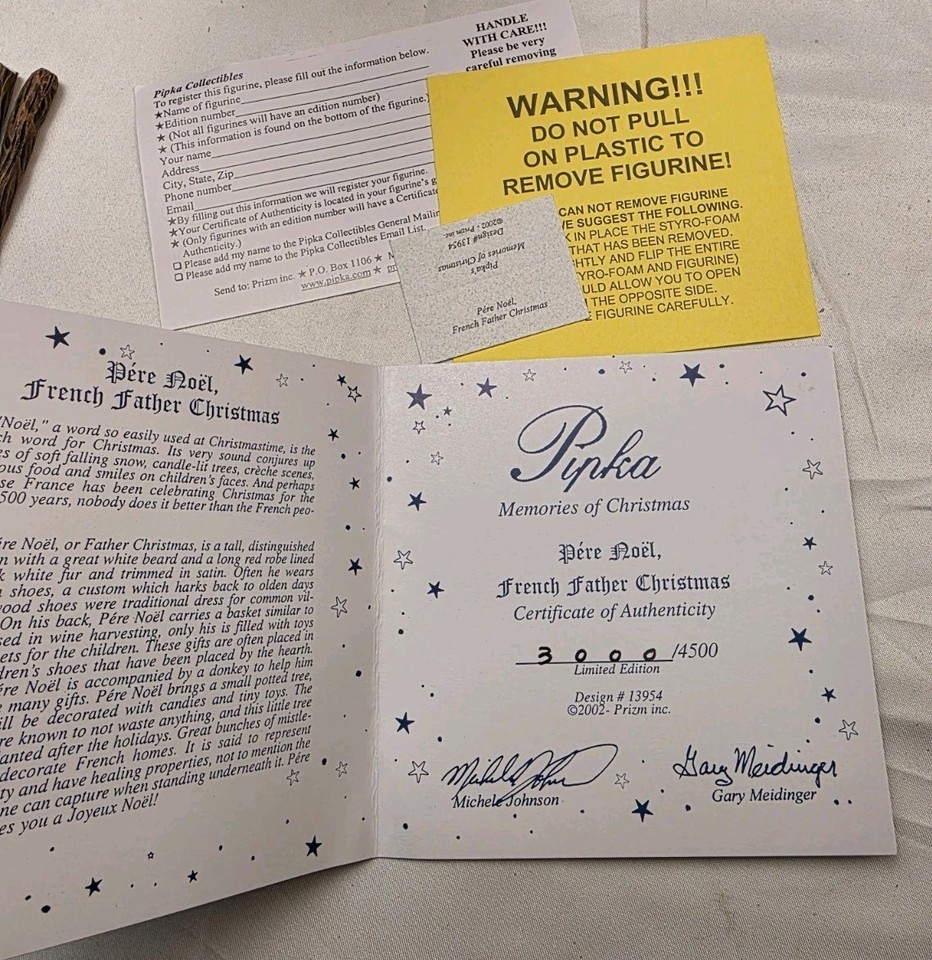 Pipka Collectibles
To register this figurine, please fill out the information below.
★Name of figurine
★Edition number
★ (Not all figurines will have an edition number)
★ (This information is found on the bottom of the figurine.)
Your name
Address
City, State, Zip
Phone number
Email
★By filling out this information we will register your figurine.
★Your Certificate of Authenticity is located in your figurine's
★ (Only figurines with an edition number will have a
Authenticity.)
❑ Please add my name to the Pipka Collectibles General
❑ Please add my name to the Pipka Collectibles Email List.
Send to: Prizm inc. ★ P.O. Box 1106 ★
www.pipka.com ★
HANDLE
WITH CARE!!!
Please be very
careful removing
WARNING!!!
DO NOT PULL
ON PLASTIC TO
REMOVE FIGURINE!
CAN NOT REMOVE FIGURINE
SUGGEST THE FOLLOWING.
IN PLACE THE STYRO-FOAM
THAT HAS BEEN REMOVED.
AND FLIP THE ENTIRE
AND FIGURINE)
ALLOW YOU TO OPEN
THE OPPOSITE SIDE.
FIGURINE CAREFULLY.
Pipka's
Memories of Christmas
Design# 13954
©2002 - Prizm inc.
Pére Noël,
French Father Christmas
Pére Noël,
French Father Christmas
"Noël," a word so easily used at Christmastime, is the
word for Christmas. Its very sound conjures up
of soft falling snow, candle-lit trees, crèche scenes,
food and smiles on children's faces. And perhaps
France has been celebrating Christmas for the
500 years, nobody does it better than the French peo-
Noël, or Father Christmas, is a tall, distinguished
with a great white beard and a long red robe lined
white fur and trimmed in satin. Often he wears
shoes, a custom which harks back to olden days
shoes were traditional dress for common vil-
On his back, Pére Noël carries a basket similar to
in wine harvesting, only his is filled with toys
for the children. These gifts are often placed in
shoes that have been placed by the hearth.
Noël is accompanied by a donkey to help him
many gifts. Pére Noël brings a small potted tree,
be decorated with candies and tiny toys. The
known to not waste anything, and this little tree
after the holidays. Great bunches of mistle-
decorate French homes. It is said to represent
and have healing properties, not to mention the
can capture when standing underneath it. Pére
you a Joyeux Noël!
Pipka
Memories of Christmas
Pére Noël,
French Father Christmas
Certificate of Authenticity
3000/4500
Limited Edition
Design # 13954
©2002- Prizm inc.
Michele Johnson Gary Meidinger
Michele Johnson Gary Meidinger